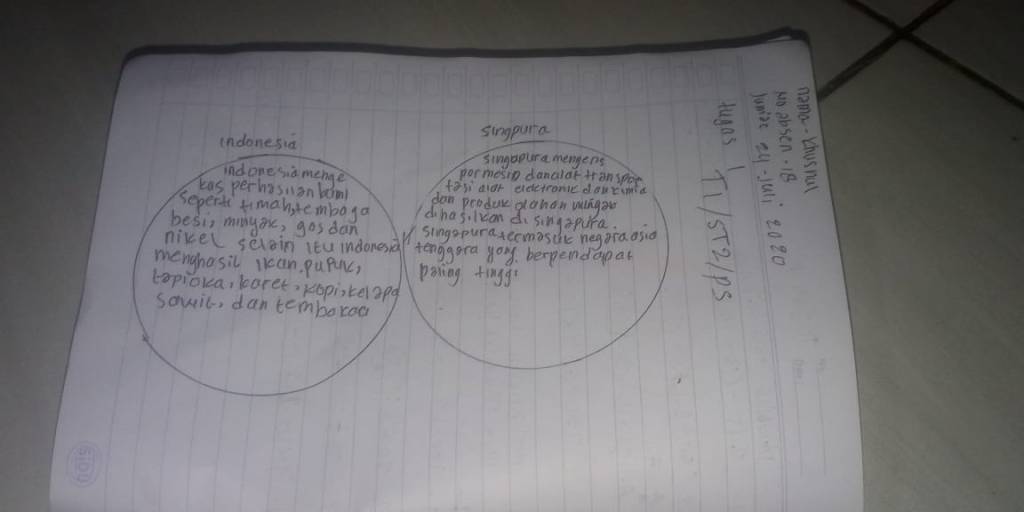 nama - khusnul
No absen . 18
Jumat 24 - Juli 2020
tugas 1
T1/ST2/PS
indonesia
indonesia menge
kas perhasilan bumi
seperti timah, tembaga
besi, minyak, gas dan
nikel selain itu indonesia
menghasil ikan, pupuk,
tapioka, karet, kopi, kelapa
sawit, dan tembakaa
singpura
singapura mengeks
por mesin dan alat transpor
tasi alat elektronic dan kimia
dan produk olahan minyak
dihasilkan di singapura.
singapura termasuk negara asia
tenggara yang berpendapat
paling tinggi
SIDU